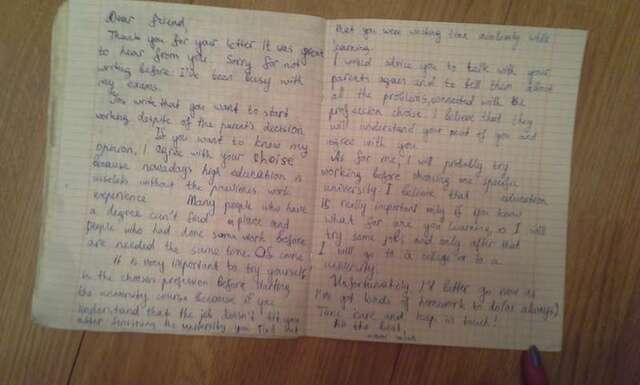 Dear friend,
Thank you for your letter. It was great
to hear from you. Sorry for not
writing before: I've been busy with
my exams.
You write that you want to start
working despite of the parent's decision.
If you want to know my
opinion, I agree with your choise
because nowadays high education is
useless without the previous work
experience. Many people who have
a degree can't find a place and
people who had done some work before
are needed the same time. Of course
It is very important to try yourself
in the chosen profession before starting
the university course because if you
understand that the job doesn't fit you
after finishing the university you find out
that you were wasting time while
learning.
I would advice you to talk with your
parents again and to tell them about
all the problems, connected with the
profession choice. I believe that they
will understand your point of you and
agree with you.
As for me, I will probably try
working before choosing specific
university. I believe that education
is really important only if you know
what for are you learning, so I will
try some jobs and only after that
I will go to a college or to a
university.
Unfortunately, I'd better go now as
I've got loads of homework to do (as always)
Take care and keep in touch!
All the best,